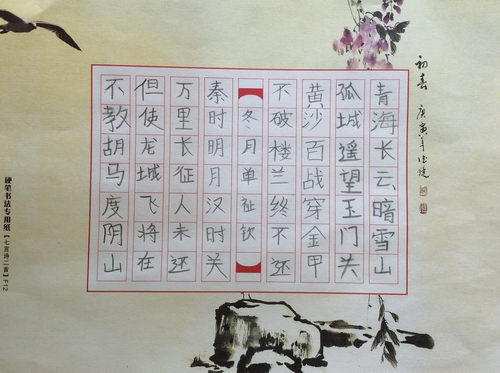 初春 庚寅年
青海长云暗雪山
孤城遥望玉门关
黄沙百战穿金甲
不破楼兰终不还
冬月单祉钦
秦时明月汉时关
万里长征人未还
但使龙城飞将在
不教胡马度阴山
硬笔书法专用纸【七言诗二首】F12